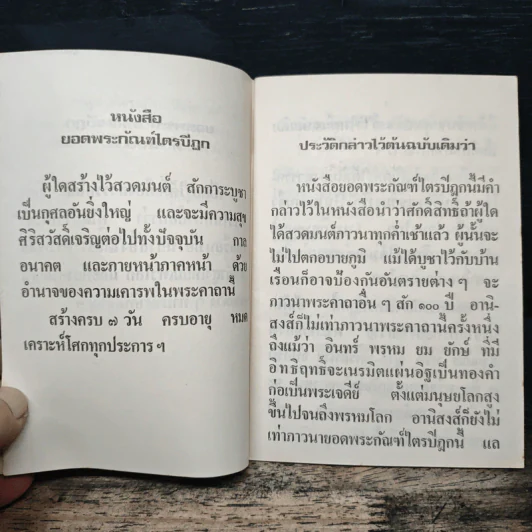 หนังสือ
ยอดพระกัณฑ์ไตรปิฎก
ผู้ใดสร้างไว้สวดมนต์ สักการะบูชา
เป็นกุศลอันยิ่งใหญ่ และจะมีความสุข
ศิริสวัสดิ์เจริญต่อไปทั้งปัจจุบัน กาล
อนาคต และกายหน้าภาคหน้า ด้วย
อำนาจของความเคารพในพระคาถานี้
สร้างครบ ๗ วัน ครบอายุ หมด
เคราะห์โศกทุกประการ ฯ
ประวัติกล่าวไว้ต้นฉบับเดิมว่า
หนังสือยอดพระกัณฑ์ไตรปิฎกนี้มีคำ
กล่าวไว้ในหนังสือนำว่าศักดิ์สิทธิ์ถ้าผู้ใด
ได้สวดมนต์ภาวนาทุกค่ำเช้าแล้ว ผู้นั้นจะ
ไม่ไปตกอบายภูมิ แม้ได้บูชาไว้กับบ้าน
เรือนก็อาจป้องกันอันตรายต่าง ๆ จะ
ภาวนาพระคาถาอื่น ๆ สัก ๑๐๐ ปี อานิ-
สงส์ก็ไม่เท่าภาวนาพระคาถานี้ครั้งหนึ่ง
ถึงแม้ว่า อินทร์ พรหม ยม ยักษ์ ที่มี
อิทธิฤทธิ์จะเนรมิตแผ่นอิฐเป็นทองคำ
ก่อเป็นพระเจดีย์ ตั้งแต่มนุษยโลกสูง
ขึ้นไปจนถึงพรหมโลก อานิสงส์ก็ยังไม่
เท่าภาวนายอดพระกัณฑ์ไตรปิฎกนี้ แล